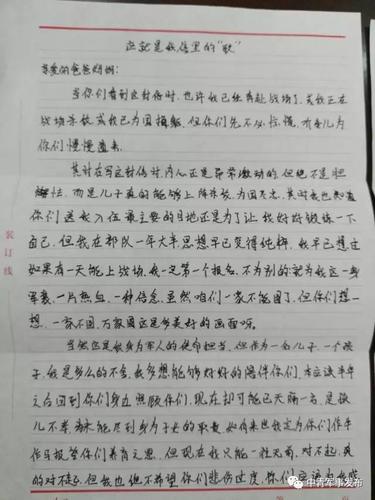 这就是我信里的“歌”
亲爱的爸爸妈妈:
当你们看到这封信时,也许我已经奔赴战场了,或我正在
战场杀敌,或我已为国捐躯,但你们先不必惊慌,听孩儿为
你们慢慢道来。
其时在写这封信时,内心还是带着激动的,但绝不是胆
怯,而是儿子真的能够上阵杀敌,为国尽忠,其时我也知道
你们送我入伍最主要的目地还是为了让我好好锻炼一下
自己,但我在部队一年大半思想早已变得纯粹,我早已想过
如果有一天能上战场,我一定第一个报名,不为别的就为我这一身
军装,一片热血,一种信念,虽然咱们一家不能圆了,但你们想一
想,一家不圆,万家圆这是多美好的画面呀。
当然这是我身为军人的使命担当,但作为一名儿子,一个孩
子,我是多么的不舍,我多想能够好好的陪伴你们,本应该半年
之后回到你们身边照顾你们,现在却可能已天隔一方,是孩
儿不孝,未能尽到身为子女的职责,如有来世我定为你们作牛
作马报答你们养育之恩,但现在我只能一往无前,对不起,真
的对不起,但我也绝不希望你们悲伤过度,你们应该为我感
装订线
中青军事发布